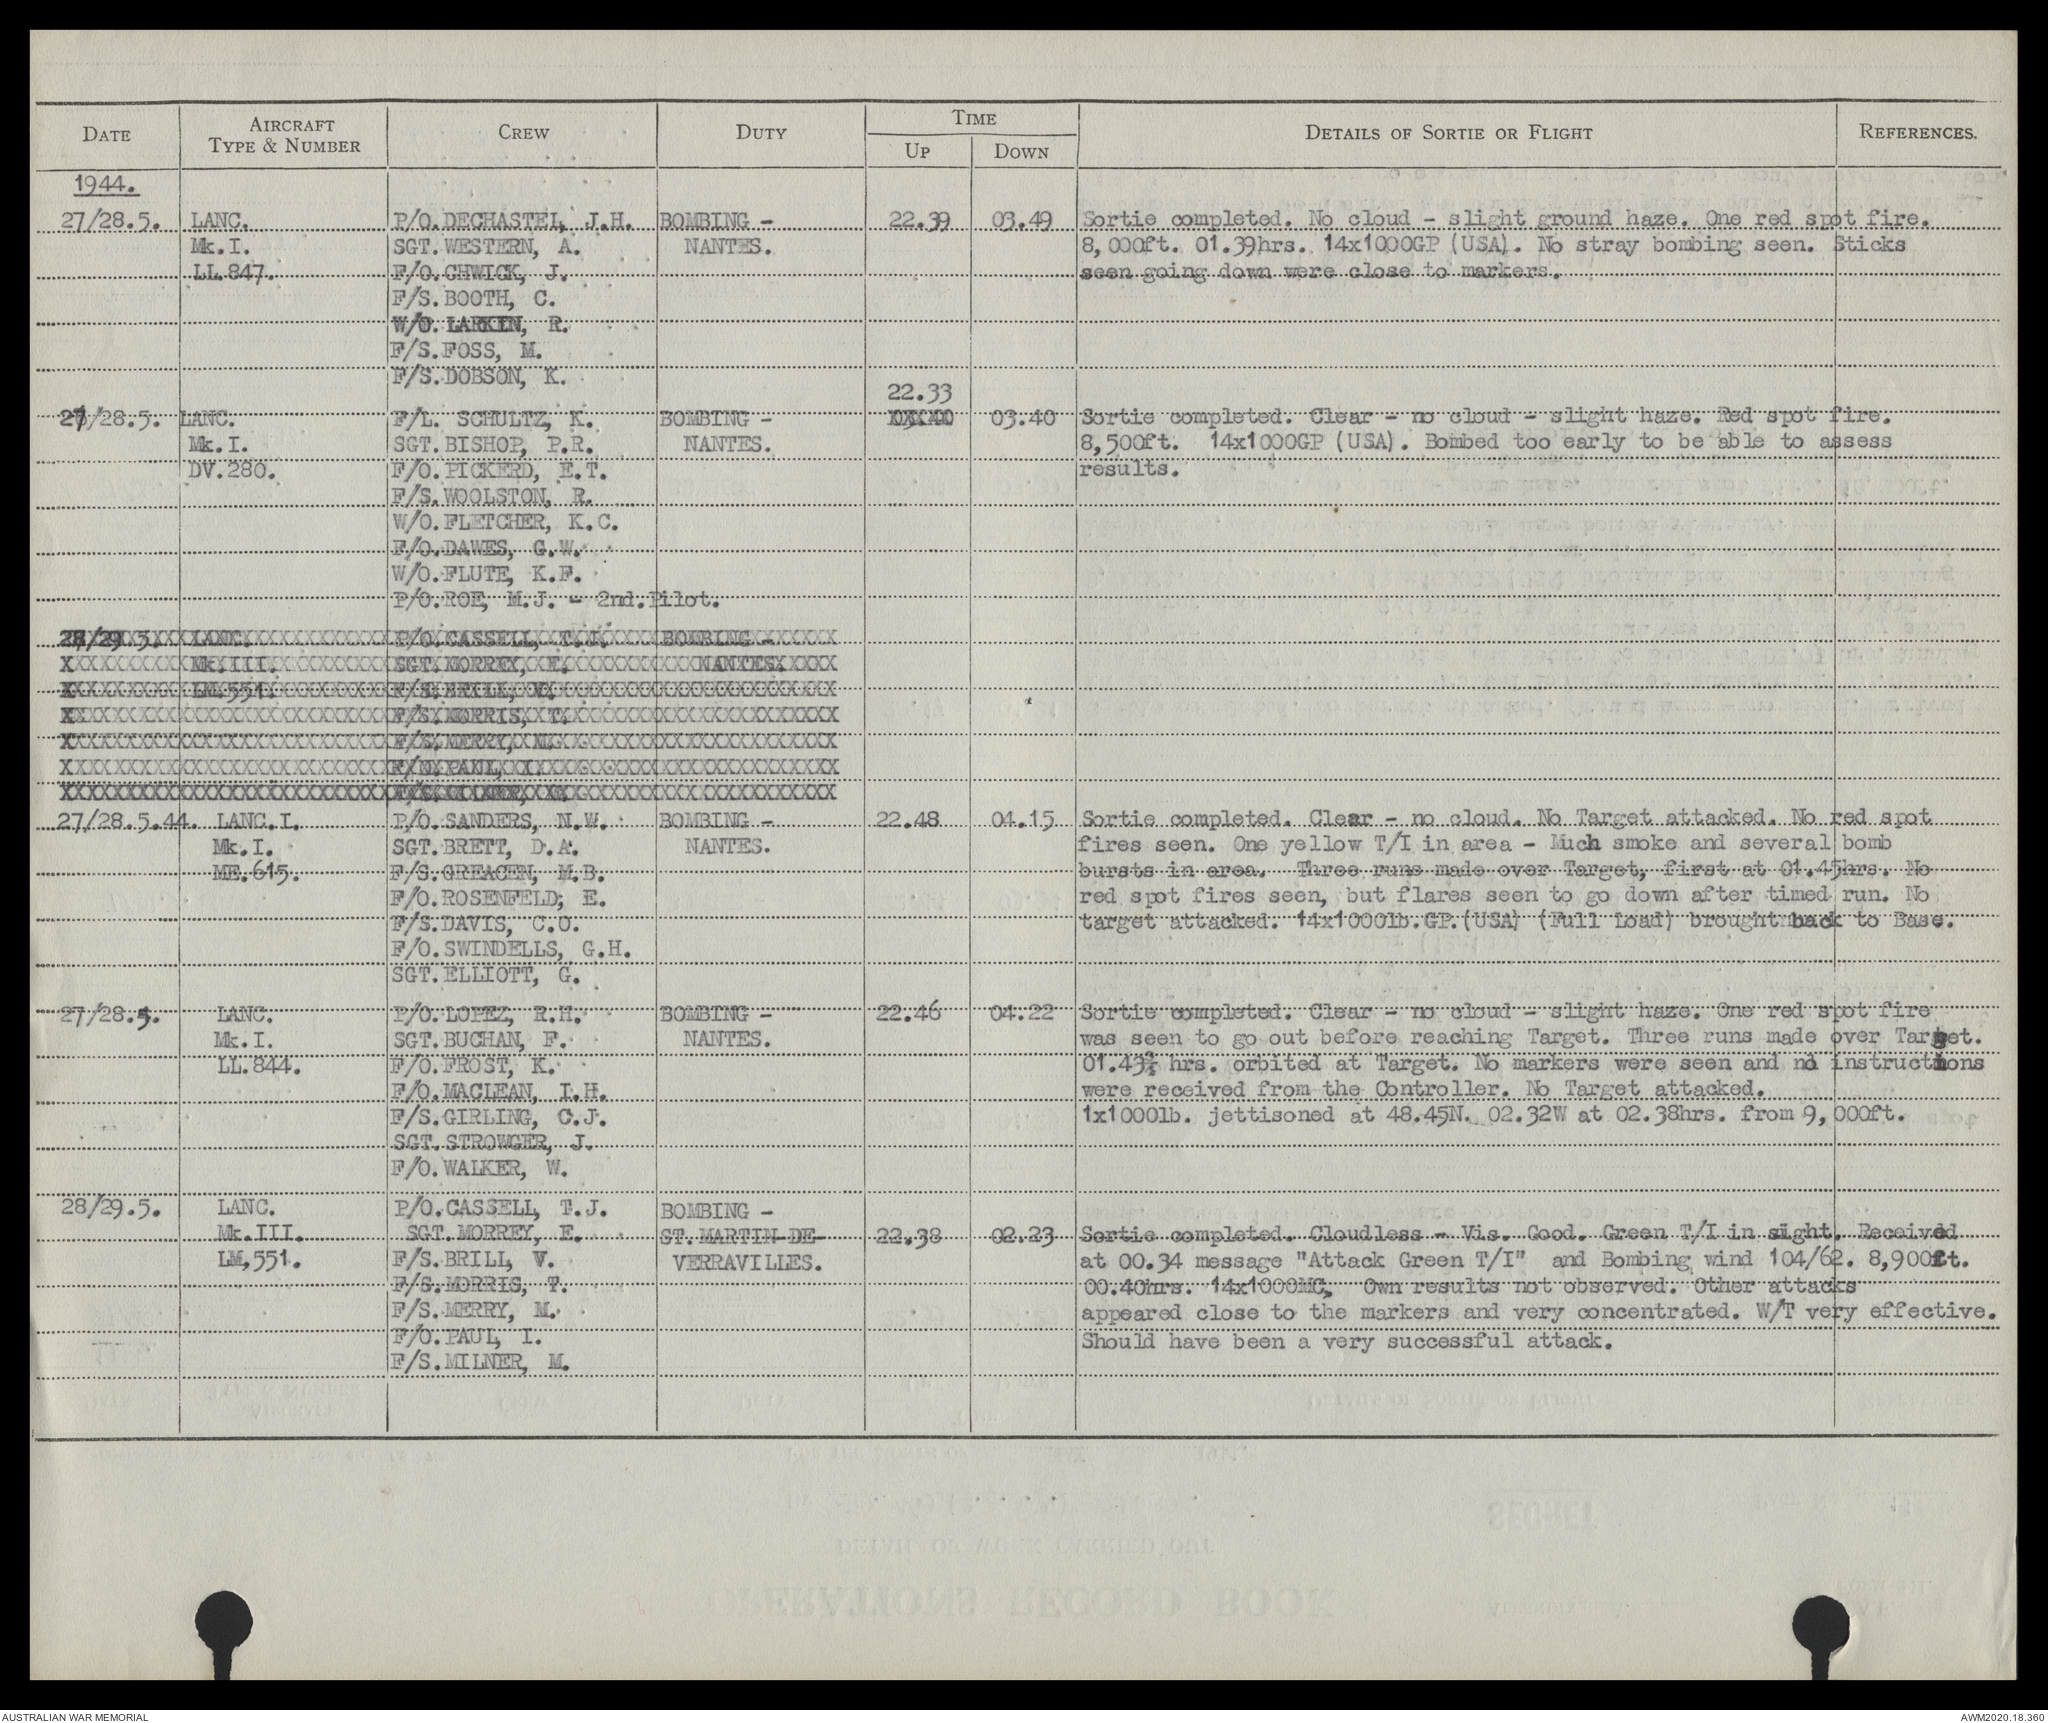 DATE AIRCRAFT TYPE & NUMBER CREW DUTY TIME UP DOWN DETAILS OF SORTIE OR FLIGHT REFERENCES.
1944.
27/28.5. LANC. P/O. DECHASTEL, J.H. BOMBING - 22.39 03.49 Sortie completed. No cloud - slight ground haze. One red spot fire.
Mk.I. SGT. WESTERN, A. NANTES. 8,000ft. 01.39hrs. 14x1000GP (USA). No stray bombing seen. Sticks
LL.847. F/O. CHWICK, J. seen going down were close to markers.
F/S. BOOTH, C.
W/O. LARKIN, R.
F/S. FOSS, M.
F/S. DOBSON, K.
22.33
27/28.5. LANC. F/L. SCHULTZ, K. BOMBING - 03.40 Sortie completed. Clear - no cloud - slight haze. Red spot fire.
Mk.I. SGT. BISHOP, P.R. NANTES. 8,500ft. 14x1000GP (USA). Bombed too early to be able to assess
DV.280. F/O. PICKERD, E.T. results.
F/S. WOOLSTON, R.
W/O. FLETCHER, K.C.
F/O. DAWES, G.W.
W/O. FLUTE, K.F.
P/O. ROE, M.J. - 2nd. Pilot.
28/29.5. LANC. P/O. CASSELL, T.J. BOMBING -
Mk.III. SGT. MORREY, E. NANTES.
LM.551. F/S. BRILL, V.
F/S. MORRIS, T.
F/S. MERRY, M.
F/O. PAUL, I.
27/28.5.44. LANC.I. P/O. SANDERS, N.W. BOMBING - 22.48 04.15 Sortie completed. Clear - no cloud. No Target attacked. No red spot
Mk.I. SGT. BRETT, D.A. NANTES. fires seen. One yellow T/I in area - Much smoke and several bomb
ME.615. F/S. GREACEN, M.B. bursts in area. Three runs made over Target, first at 01.45hrs. No
F/O. ROSENFELD; E. red spot fires seen, but flares seen to go down after timed run. No
F/S. DAVIS, C.O. target attacked. 14x1000lb.GP.(USA) (Full Load) brought back to Base.
F/O. SWINDELLS, G.H.
SGT. ELLIOTT, G.
27/28.5. LANC. P/O. LOPEZ, R.H. BOMBING - 22.46 04.22 Sortie completed. Clear - no cloud - slight haze. One red spot fire
Mk.I. SGT. BUCHAN, F. NANTES. was seen to go out before reaching Target. Three runs made over Target.
LL.844. F/O. FROST, K. 01.43½ hrs. orbited at Target. No markers were seen and no instructions
F/O. MACLEAN, I.H. were received from the Controller. No Target attacked.
F/S. GIRLING, C.J. 1x1000lb. jettisoned at 48.45N. 02.32W at 02.38hrs. from 9,000ft.
SGT. STROWGER, J.
F/O. WALKER, W.
28/29.5. LANC. P/O. CASSELL, T.J. BOMBING -
Mk.III. SGT. MORREY, E. ST. MARTIN DE- 22.38 02.23 Sortie completed. Cloudless - Vis. Good. Green T/I in sight. Received
LM,551. F/S. BRILL, V. VERRAVILLES. at 00.34 message "Attack Green T/I" and Bombing wind 104/62. 8,900ft.
F/S. MORRIS, T. 00.40hrs. 14x1000MC, Own results not observed. Other attacks
F/S. MERRY, M. appeared close to the markers and very concentrated. W/T very effective.
F/O. PAUL, I. Should have been a very successful attack.
F/S. MILNER, M.
AUSTRALIAN WAR MEMORIAL AWM2020.18.360